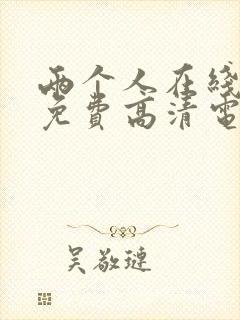 两个人在线
免费高清电
吴敬琏